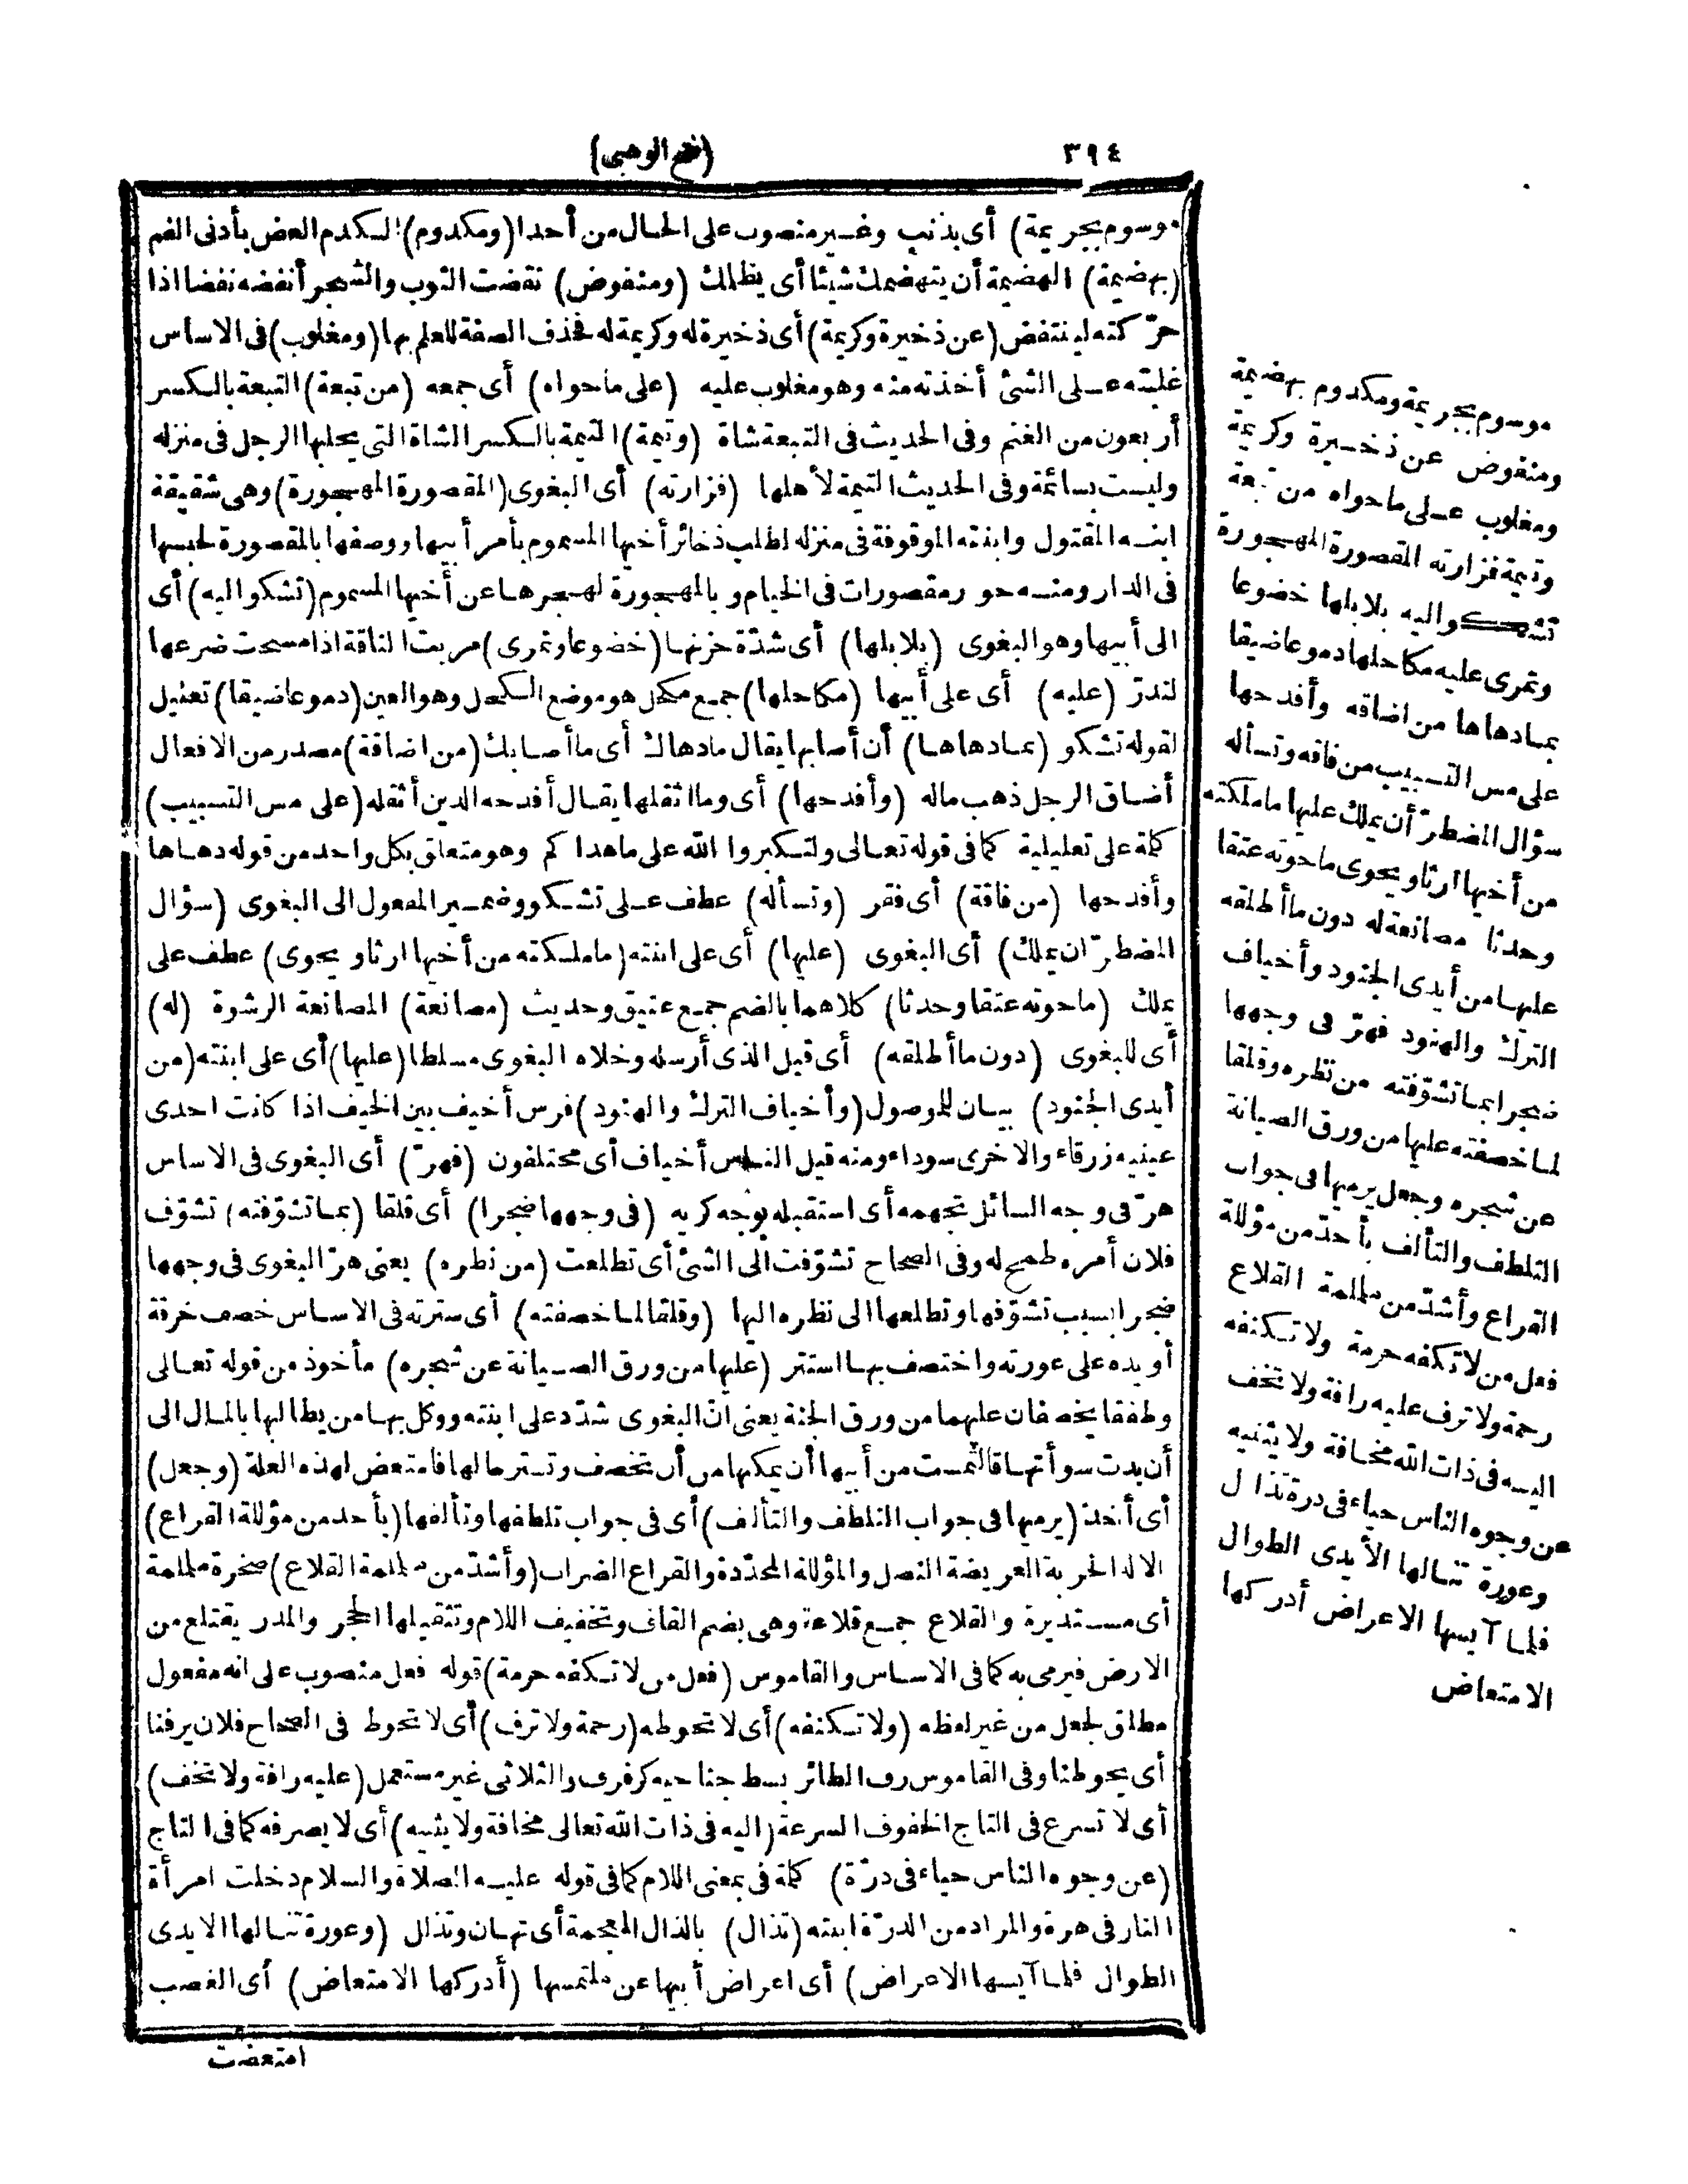 ٣٩٤
(فتح الوهبى)
موسوم بجريمة) أى بذنب وغير منصوب على الحال من أحدا (ومكدوم) الكدم العض بأدنى الفم
(بهضيمة) الهضيمة أن يتهضمك شيئا أى يظلمك (ومنفوض) نفضت الثوب والشجر أنفضه نفضا اذا
حرّكته لينتفض (عن ذخيرة وكريمة) أى ذخيرة له وكريمة له فحذف الصفة للعلم بها (ومغلوب) فى الاساس
غلبته على الشئ أخذته منه وهو مغلوب عليه (على ما حواه) أى جمعه (من تبعة) التبعة بالكسر
أربعون من الغنم وفى الحديث فى التبعة شاة (وتيمة) التيمة بالكسر الشاة التى يحلبها الرجل فى منزله
وليست بسائمة وفى الحديث التيمة لأهلها (فزارته) أى البغوى (المقصورة المهجورة) وهى شقيقة
ابنه المقتول وابنته الموقوفة فى منزله لطلب ذخائر أخيها المسموم بأمر أبيها ووصفها بالمقصورة لحبسها
فى الدار ومنه حور مقصورات فى الخيام وبالمهجورة لهجرها عن أخيها المسموم (تشكو اليه) أى
الى أبيها وهو البغوى (بلابلها) أى شدّة حزنها (خضوعا وتمرى) مريت الناقة اذا مسحت ضرعها
لتدرّ (عليه) أى على أبيها (مكاحلها) جمع مكحل هو موضع الكحل وهو العين (دموعا ضيقا) تعليل
لقوله تشكو (بمادهاها) أن أصابها يقال مادهاك أى ما أصابك (من اضاقة) مصدر من الافعال
أضاق الرجل ذهب ماله (وأفدحها) أى وما اثقلها يقال أفدحه الدين أثقله (على مس التسبيب)
كلمة على تعليلية كما فى قوله تعالى ولتكبروا الله على ماهداكم وهو متعلق بكل واحد من قوله دهاها
وأفدحها (من فاقة) أى فقر (وتسأله) عطف على تشكو وضمير المفعول الى البغوى (سؤال
المضطرّ ان يملك) أى البغوى (عليها) أى على ابنته (ما ملكته من أخيها ارثا ويحوى) عطف على
يملك (ما حوته عتقا وحدثا) كلاهما بالضم جمع عتيق وحديث (مصانعة) المصانعة الرشوة (له)
أى للبغوى (دون ما أطلقه) أى قبل الذى أرسله وخلاه البغوى مسلطا (عليها) أى على ابنته (من
أيدى الجنود) بيان للموصول (وأخياف الترك والهنود) فرس أخيف بين الخيف اذا كانت احدى
عينيه زرقاء والاخرى سوداء ومنه قيل الناس أخياف أى مختلفون (فهرّ) أى البغوى فى الاساس
هرّ فى وجه السائل تجهمه أى استقبله بوجه كريه (فى وجهها ضجرا) أى قلقا (بما تشوّفته) تشوّف
فلان أمره طمح له وفى الصحاح تشوّفت الى الشئ أى تطلعت (من نظره) يعنى هرّ البغوى فى وجهها
ضجرا بسبب تشوّفها وتطلعها الى نظره اليها (وقلقا لما خصفته) أى سترته فى الاساس خصف خرقة
أو يده على عورته واختصف بها استتر (عليها من ورق الصيانة عن شجره) مأخوذ من قوله تعالى
وطفقا يخصفان عليهما من ورق الجنة يعنى انّ البغوى شدّد على ابنته ووكل بها من يطالبها بالمال الى
أن بدت سوأتها فالتمست من أبيها أن يمكنها من أن تخصف وتستر مالها فامتعض لهذه العلة (وجعل)
أى أخذ (يرميها فى جواب التلطف والتألف) أى فى جواب تلطفها وتألفها (بأحد من مؤللة القراع)
الاله الحربة العريضة النصل والمؤللة المحدّدة والقراع الضراب (وأشدّ من ململمة القلاع) صخرة ململمة
أى مستديرة والقلاع جمع قلاعة وهى بضم القاف وتخفيف اللام وتثقيلها الحجر والمدر يقتلع من
الارض فيرمى به كما فى الاساس والقاموس (فعل من لا تكفه حرمة) قوله فعل منصوب على انه مفعول
مطلق لجعل من غير لفظه (ولا تكنفه) أى لا تحوطه (رحمة ولا ترف) أى لا تحوط فى الصحاح فلان يرفنا
أى يحوطنا وفى القاموس رف الطائر بسط جناحيه كرفرف والثلاثى غير مستعمل (عليه رافة ولا تخف)
أى لا تسرع فى التاج الخفوف السرعة (اليه فى ذات الله تعالى مخافة ولا يثنيه) أى لا يصرفه كما فى التاج
(عن وجوه الناس حياء فى درّة) كلمة فى بمعنى اللام كما فى قوله عليه الصلاة والسلام دخلت امرأة
النار فى هرة والمراد من الدرّة ابنته (تذال) بالذال المعجمة أى تهان وتذال (وعورة تنالها الايدى
الطوال فلما آيسها الاعراض) أى اعراض أبيها عن ملتمسها (أدركها الامتعاض) أى الغضب
امتعضت
موسوم بجريمة ومكدوم بهضيمة
ومنفوض عن ذخيرة وكريمة
ومغلوب على ما حواه من تبعة
وتيمة فزارته المقصورة المهجورة
تشكو اليه بلابلها خضوعا
وتمرى عليه مكاحلها دموعا ضيقا
بمادهاها من اضاقه وأفدحها
على مس التسبيب من فاقه وتسأله
سؤال المضطرّ أن يملك عليها ما ملكته
من أخيها ارثا ويحوى ما حوته عتقا
وحدثا مصانعة له دون ما أطلقه
عليها من أيدى الجنود وأخياف
الترك والهنود فهرّ فى وجهها
ضجرا بما تشوّفته من نظره وقلقا
لما خصفته عليها من ورق الصيانة
عن شجره وجعل يرميها فى جواب
التلطف والتألف بأحدّ من مؤللة
القراع وأشدّ من ململمة القلاع
فعل من لا تكفه حرمة ولا تكنفه
رحمة ولا ترف عليه رافة ولا تخف
اليه فى ذات الله مخافة ولا يثنيه
عن وجوه الناس حياء فى درة تذال
وعورة تنالها الأيدى الطوال
فلما آيسها الاعراض أدركها
الامتعاض